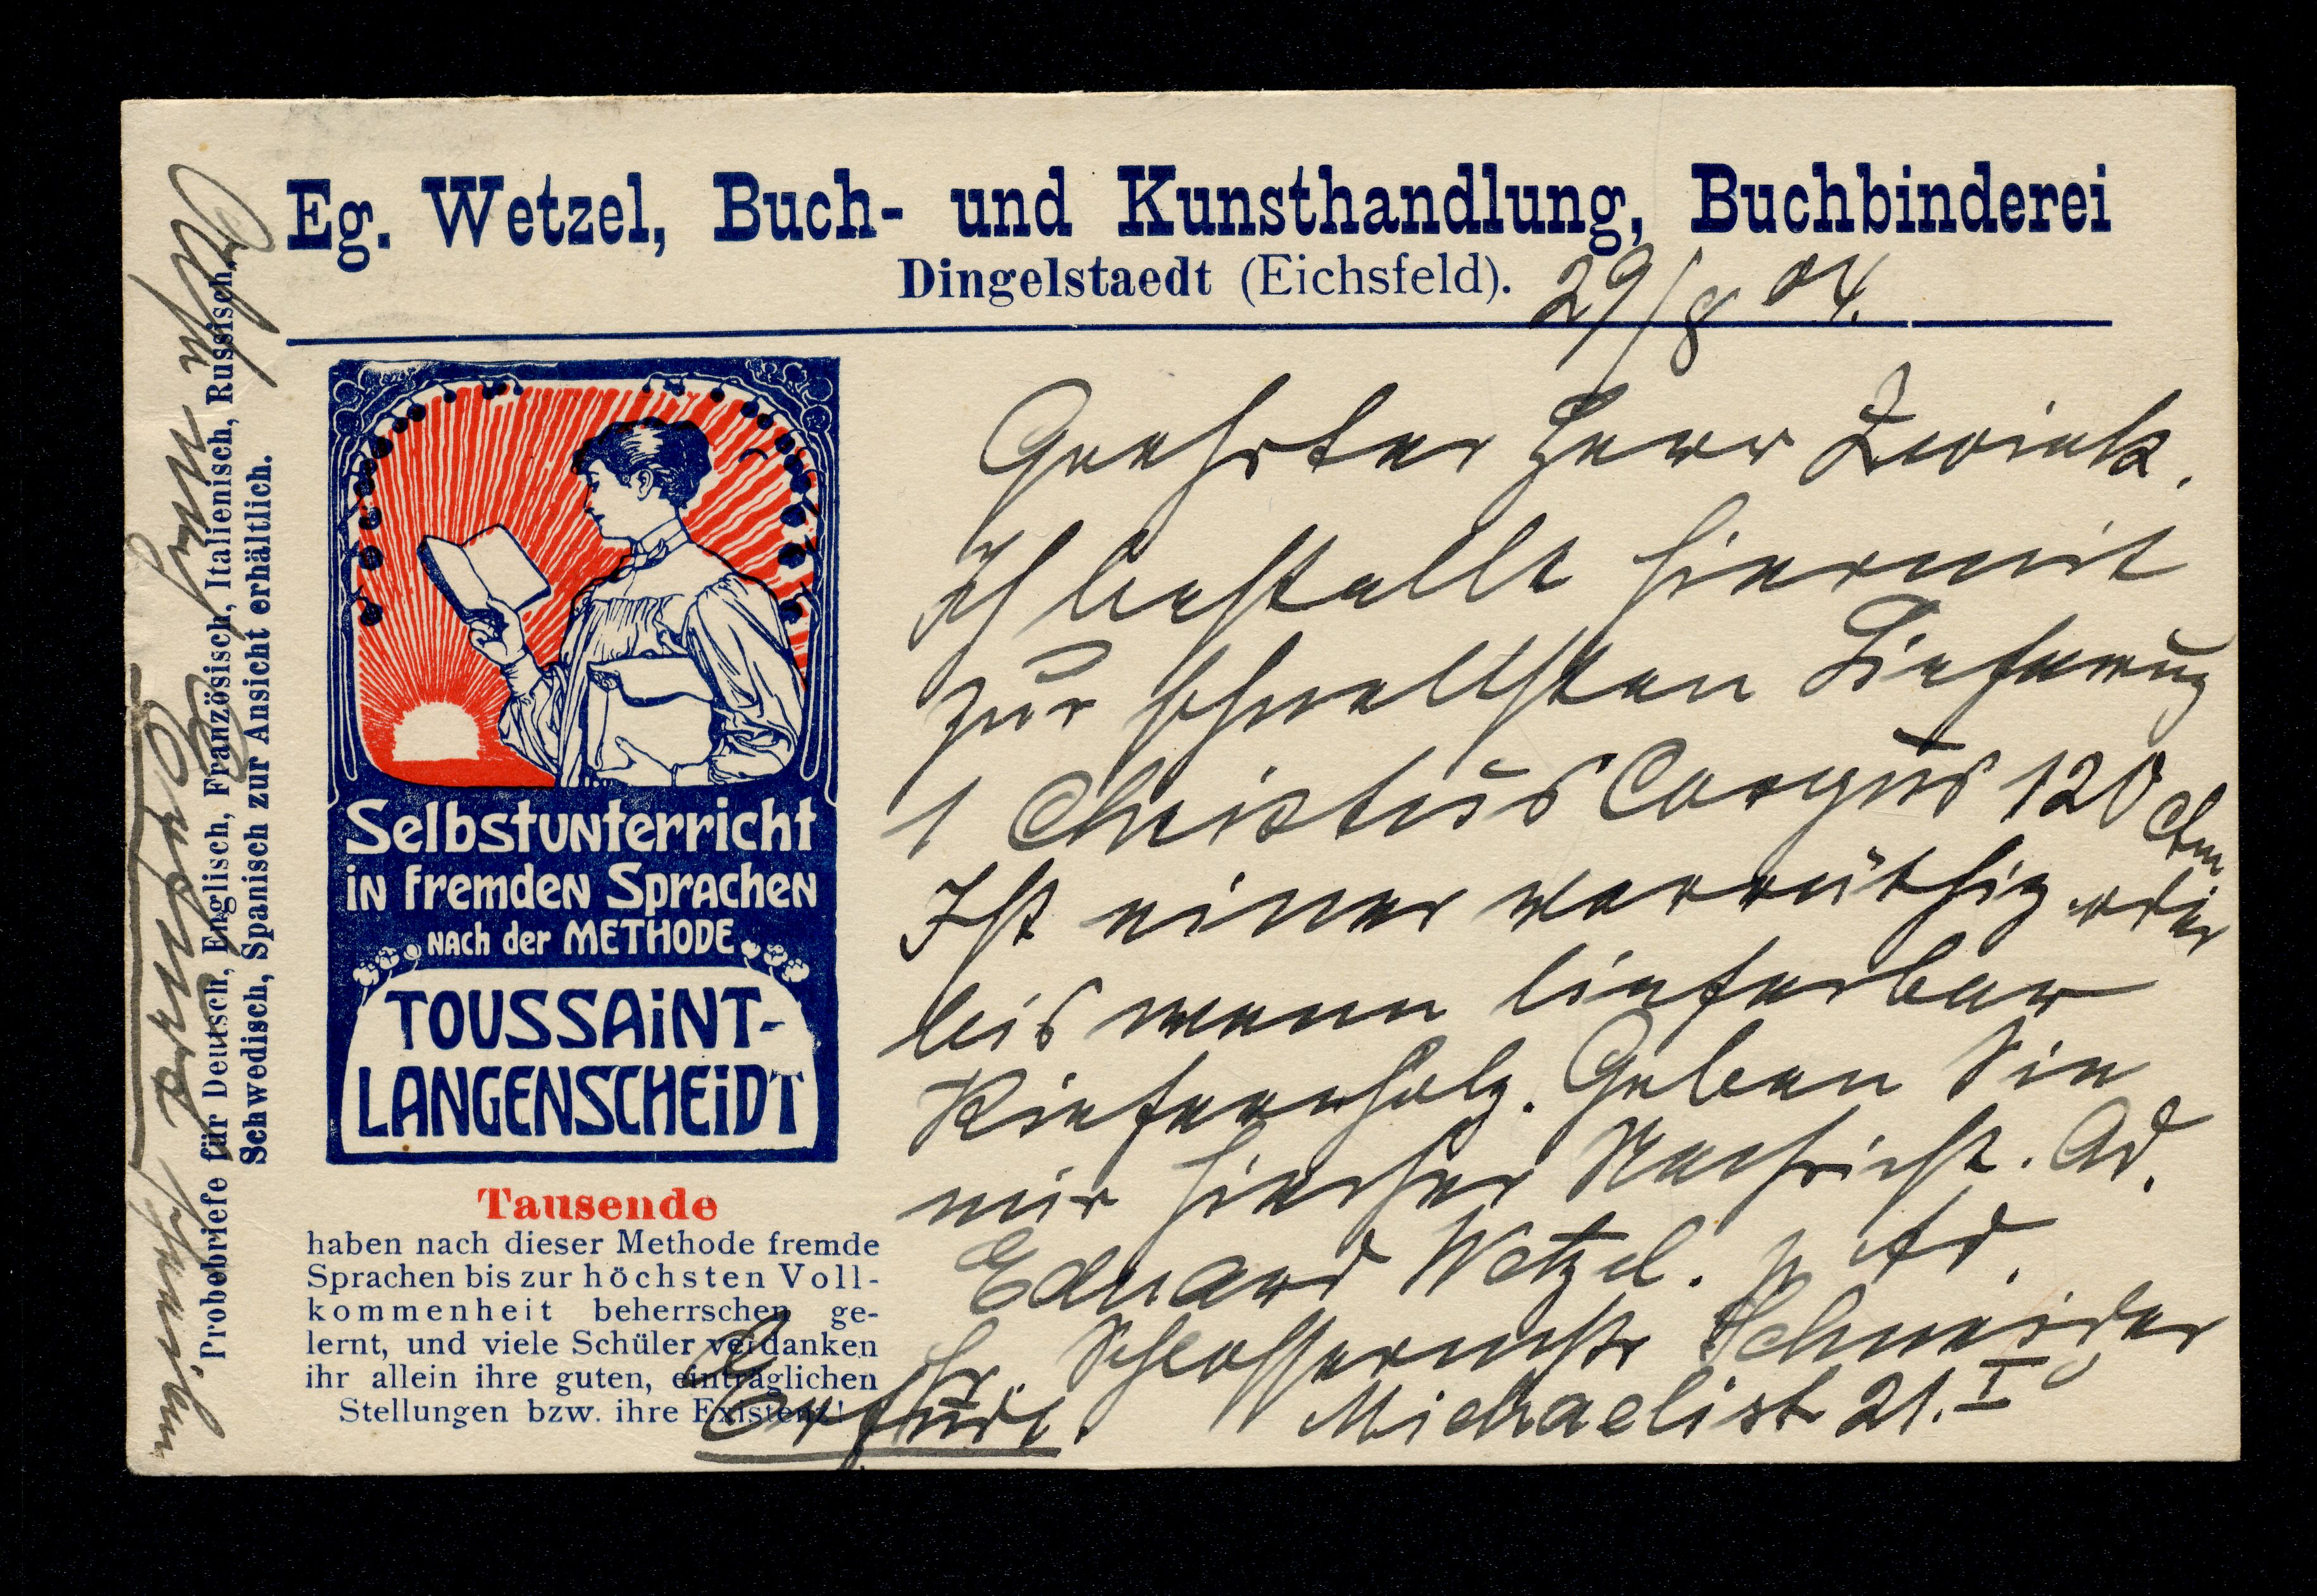 Eg. Wetzel, Buch- und Kunsthandlung, Buchbinderei
Dingelstaedt (Eichsfeld). 29/8 04.
Geehrter Herr Zwink.
Ich bestelle hiermit
zur schnellsten Lieferung
1 Christus Corpus 120 Ctm
Ist einer vorräthig oder
bis wann lieferbar
Kiefernholz. Geben Sie
mir hierher Nachricht. Ad.
Eduard Wetzel. p. Ad.
Hr. Schlossermstr Schneider
Erfurt. Michaelist 21. I
Selbstunterricht
in fremden Sprachen
nach der METHODE
TOUSSAINT-
LANGENSCHEIDT
Tausende
haben nach dieser Methode fremde
Sprachen bis zur höchsten Voll-
kommenheit beherrschen ge-
lernt, und viele Schüler verdanken
ihr allein ihre guten, einträglichen
Stellungen bzw. ihre Existenz!
Probebriefe für Deutsch, Englisch, Französisch, Italienisch, Russisch,
Schwedisch, Spanisch zur Ansicht erhältlich.